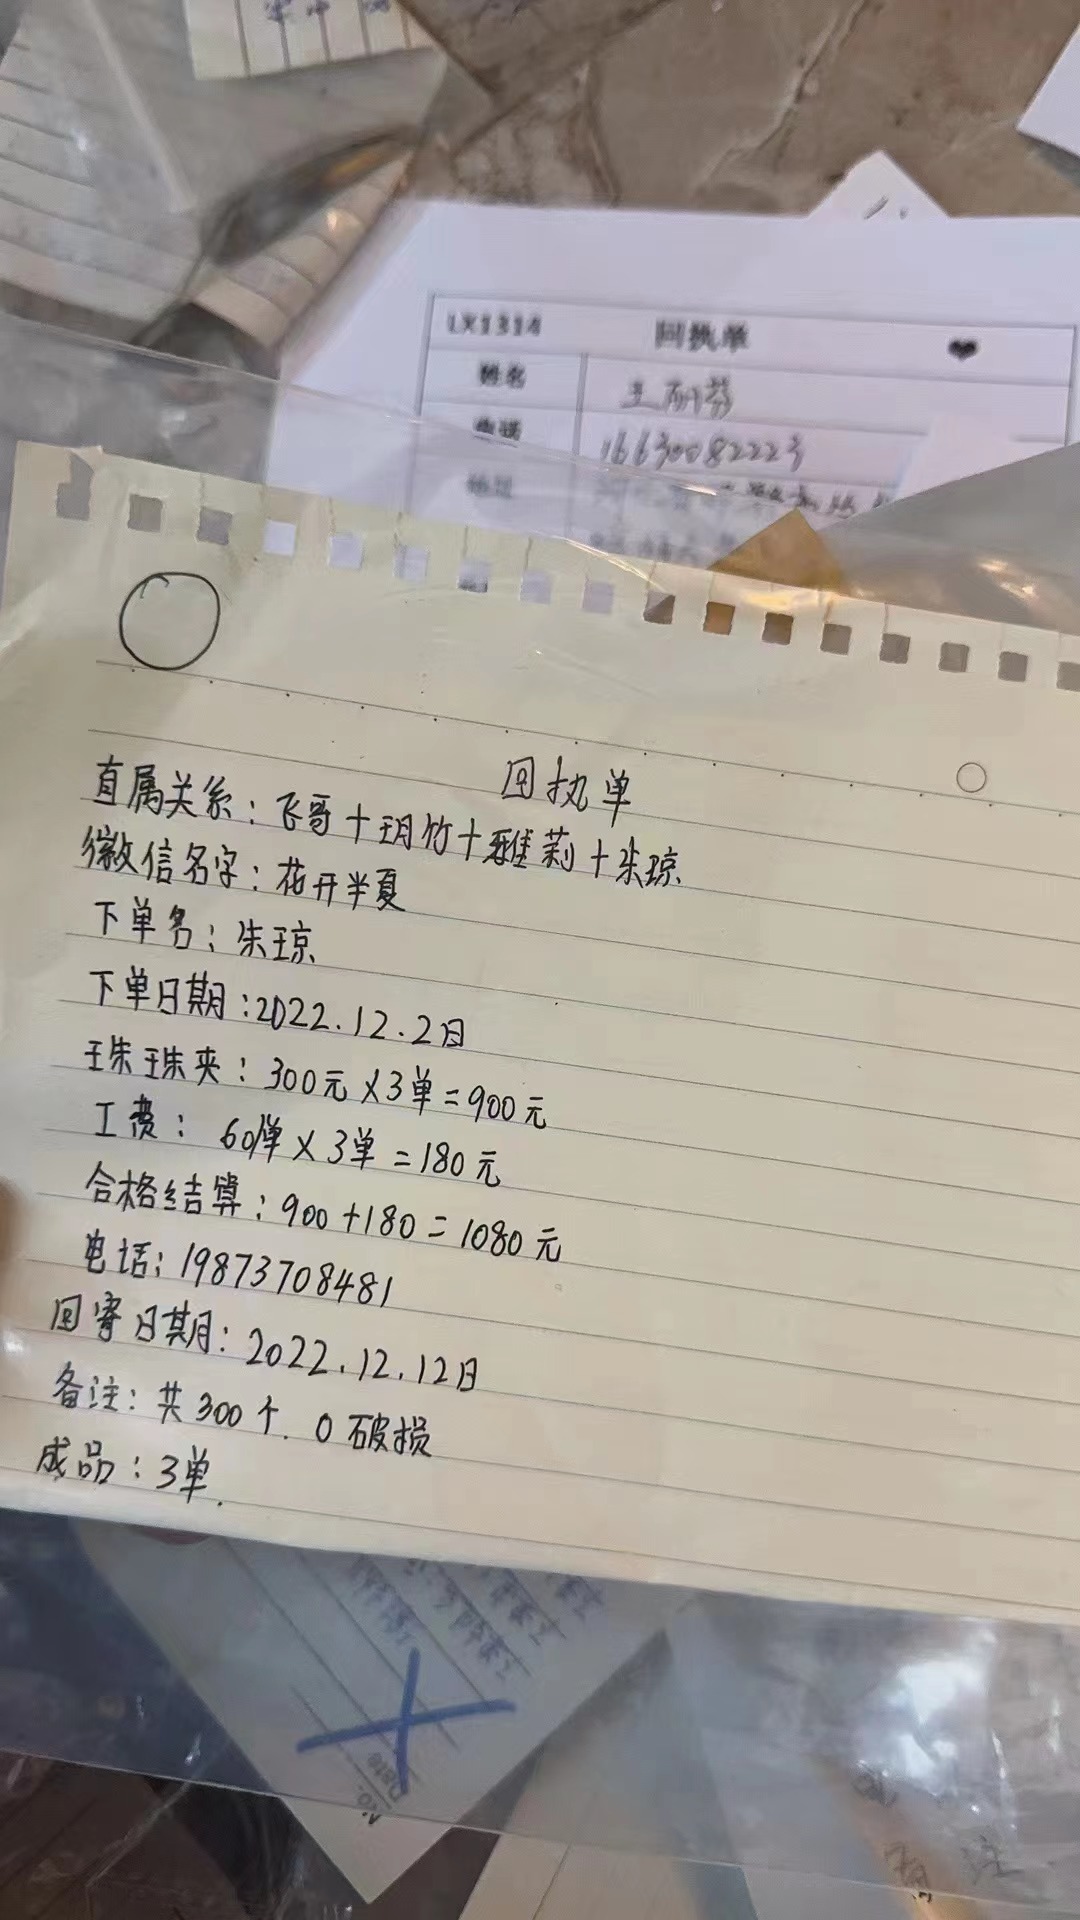 LX1314 回执单
姓名
电话 16630082223
回执单
直属关系：飞哥+玥竹+雅莉+朱琼
微信名字：花开半夏
下单名：朱琼
下单日期：2022.12.2日
珠珠夹：300元×3单=900元
工费：60/单×3单=180元
合格结算：900+180=1080元
电话：19873708481
回寄日期：2022.12.12日
备注：共300个.0破损
成品：3单.
Date
No.